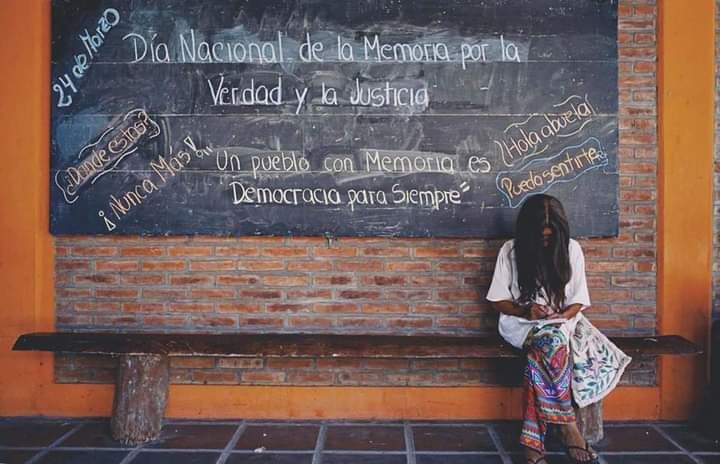 24 de Marzo
Día Nacional de la Memoria por la
Verdad y la Justicia
¿Donde estas?
¡¡Nunca Más!!...
Un pueblo con Memoria es
"Democracia para Siempre"
¡Hola abuela!
Puedo Sentirte...